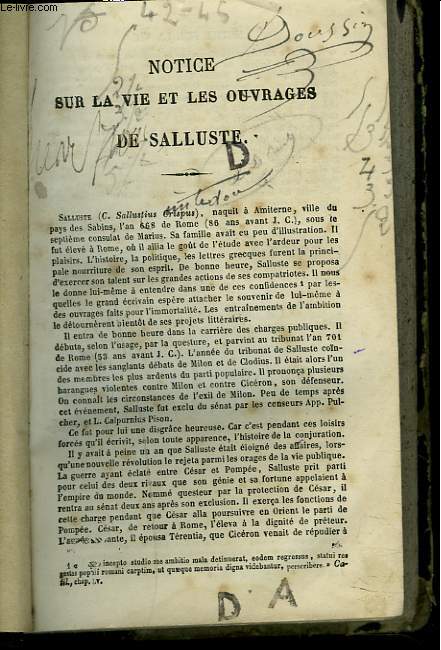 Le-livre.com
42-45
Doussin
NOTICE
SUR LA VIE ET LES OUVRAGES
DE SALLUSTE.
D
SALLUSTE (C. Sallustius Crispus), naquit à Amiterne, ville du
pays des Sabins, l'an 668 de Rome (86 ans avant J. C.), sous le
septième consulat de Marius. Sa famille avait eu peu d'illustration. Il
fut élevé à Rome, où il allia le goût de l'étude avec l'ardeur pour les
plaisirs. L'histoire, la politique, les lettres grecques furent la princi-
pale nourriture de son esprit. De bonne heure, Salluste se proposa
d'exercer son talent sur les grandes actions de ses compatriotes. Il nous
le donne lui-même à entendre dans une de ces confidences 1 par les-
quelles le grand écrivain espère attacher le souvenir de lui-même à
des ouvrages faits pour l'immortalité. Les entraînements de l'ambition
le détournèrent bientôt de ses projets littéraires.
Il entra de bonne heure dans la carrière des charges publiques. Il
débuta, selon l'usage, par la questure, et parvint au tribunat l'an 701
de Rome (53 ans avant J. C.). L'année du tribunat de Salluste coïn-
cide avec les sanglants débats de Milon et de Clodius. Il était alors l'un
des membres les plus ardents du parti populaire. Il prononça plusieurs
harangues violentes contre Milon et contre Cicéron, son défenseur.
On connaît les circonstances de l'exil de Milon. Peu de temps après
cet événement, Salluste fut exclu du sénat par les censeurs App. Pul-
cher, et L. Calpurnius Pison.
Ce fut pour lui une disgrâce heureuse. Car c'est pendant ces loisirs
forcés qu'il écrivit, selon toute apparence, l'histoire de la conjuration.
Il y avait à peine un an que Salluste était éloigné des affaires, lors-
qu'une nouvelle révolution le rejeta parmi les orages de la vie publique.
La guerre ayant éclaté entre César et Pompée, Salluste prit parti
pour celui des deux rivaux que son génie et sa fortune appelaient à
l'empire du monde. Nommé questeur par la protection de César, il
rentra au sénat deux ans après son exclusion. Il exerça les fonctions de
cette charge pendant que César alla poursuivre en Orient le parti de
Pompée. César, de retour à Rome, l'éleva à la dignité de préteur.
il épousa Térentia, que Cicéron venait de répudier à
1 « incepto studio me ambitio mala detinuerat, eodem regressus, statui res
gestas populi romani carptim, ut quæque memoria digna videbantur, perscribere. » Ca-
til., chap. IV.
D A